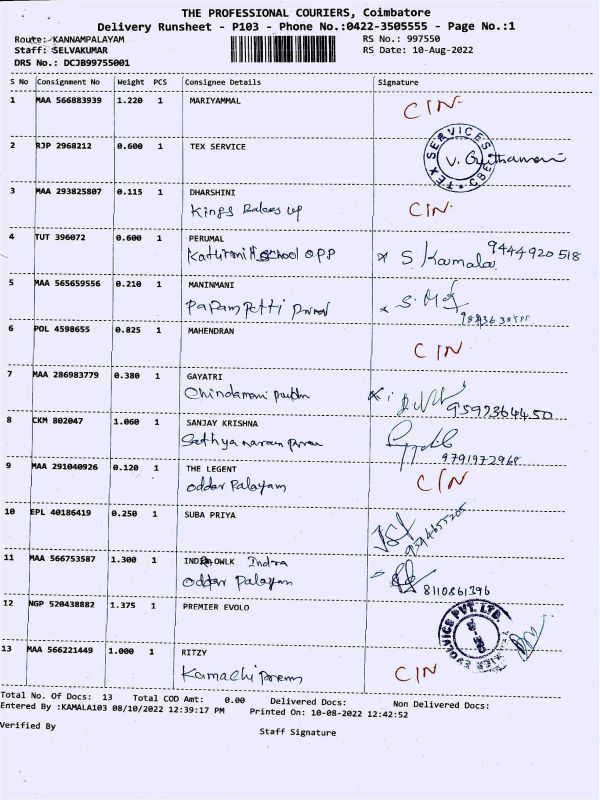 THE PROFESSIONAL COURIERS, Coimbatore
Delivery Runsheet - P103 - Phone No.:0422-3505555 - Page No.:1
Route: KANNAMPALAYAM RS No.: 997550
Staff: SELVAKUMAR RS Date: 10-Aug-2022
DRS No.: DCJB99755001
S No Consignment No Weight PCS Consignee Details Signature
1 MAA 566883939 1.220 1 MARIYAMMAL CIN
2 RJP 2968212 0.600 1 TEX SERVICE
TEX SERVICES CBE
3 MAA 293825807 0.115 1 DHARSHINI
Kings CIN
4 TUT 396072 0.600 1 PERUMAL
school OPP S. Kamala 9444920518
5 MAA 565659556 0.210 1 MANINMANI
6 POL 4598655 0.825 1 MAHENDRAN
CIN
7 MAA 286983779 0.380 1 GAYATRI
9592364450
8 CKM 802047 1.060 1 SANJAY KRISHNA
9791972968
9 MAA 291040926 0.120 1 THE LEGENT
oddar Palayam CIN
10 EPL 40186419 0.250 1 SUBA PRIYA
11 MAA 566753587 1.300 1 Indra
oddar Palayam 8110861396
12 NGP 520438882 1.375 1 PREMIER EVOLO
EVOLVICS PVT. LTD.
13 MAA 566221449 1.000 1 RITZY
CIN
Total No. Of Docs: 13 Total COD Amt: 0.00 Delivered Docs: Non Delivered Docs:
Entered By :KAMALA103 08/10/2022 12:39:17 PM Printed On: 10-08-2022 12:42:52
Verified By
Staff Signature